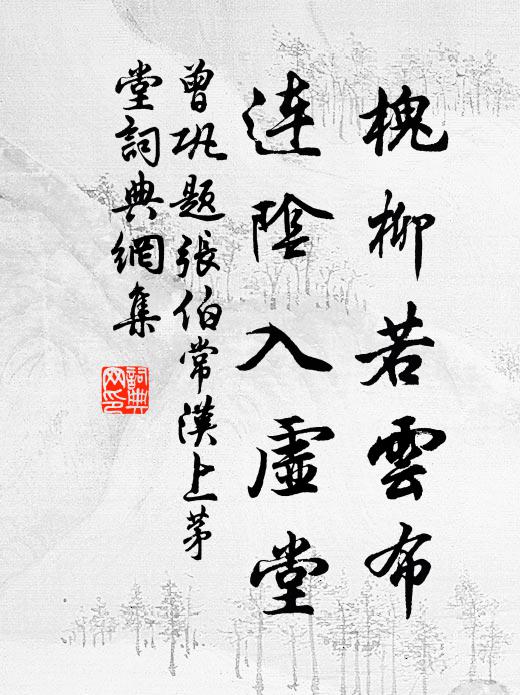 槐柳若雲布
連陰入虛堂
曾巩題張伯常漢上茅
堂詞典網集
詞典
网印